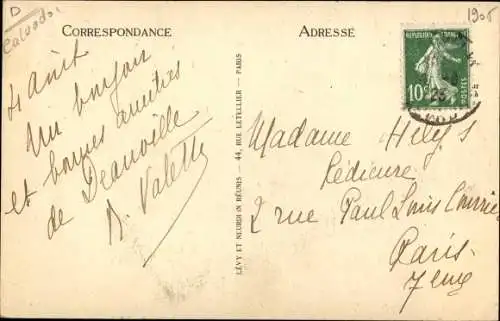 D
Calvados
1905
CORRESPONDANCE
ADRESSÉ
4 Août
Un bonjour
et bonnes amitiés
de Deauville
Valette
LÉVY ET NEURDEIN RÉUNIS — 44, RUE LETELLIER — PARIS
REPUBLIQUE FRANÇAISE
10c
POSTES
23
Madame Hely's
Pédicure
2 rue Paul Louis Courrier
Paris
7eme